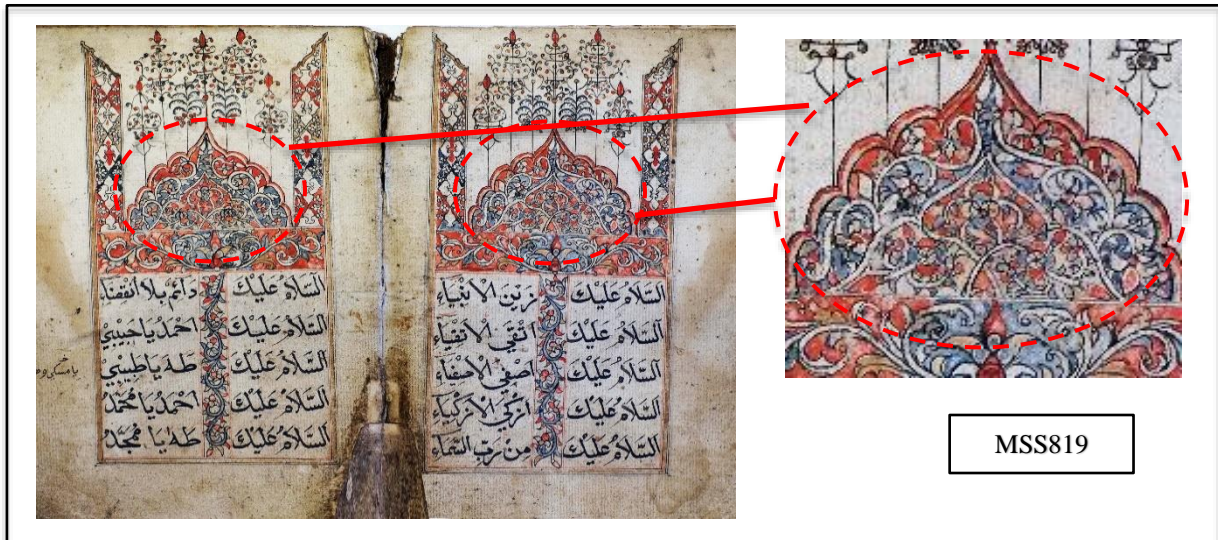 اَلسَّلَامُ عَلَيْكَ زَيْنَ الْاَنْبِيَاءِ
اَلسَّلَامُ عَلَيْكَ اَتْقَى الْاَتْقِيَاءِ
اَلسَّلَامُ عَلَيْكَ اَصْفَى الْاَصْفِيَاءِ
اَلسَّلَامُ عَلَيْكَ اَزْكَى الْاَزْكِيَاءِ
اَلسَّلَامُ عَلَيْكَ مِنْ رَبِّ السَّمَاءِ
اَلسَّلَامُ عَلَيْكَ دَائِمْ بِلَا انْقِضَاءِ
اَلسَّلَامُ عَلَيْكَ اَحْمَدُ يَا حَبِيْبِيْ
اَلسَّلَامُ عَلَيْكَ طٰهَ يَا طَبِيْبِيْ
اَلسَّلَامُ عَلَيْكَ اَحْمَدُ يَا مُحَمَّدُ
اَلسَّلَامُ عَلَيْكَ طٰهَ يَا مُمَجَّدُ
MSS819